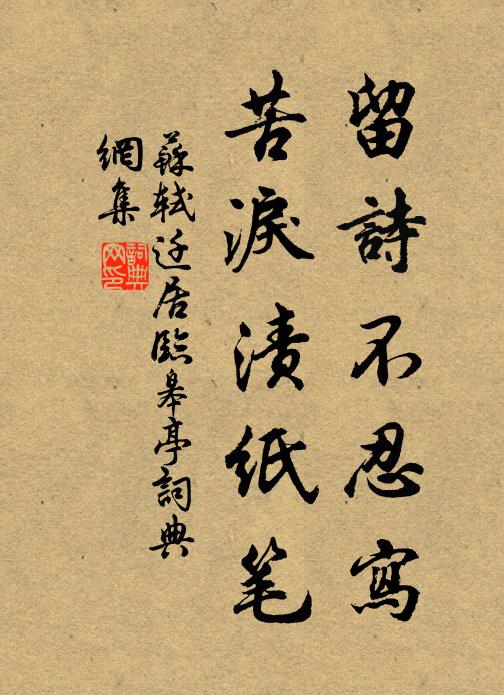 留詩不忍寫
苦淚漬紙笔
蘇軾迁居臨皋亭詞典
網集
詞典
网印